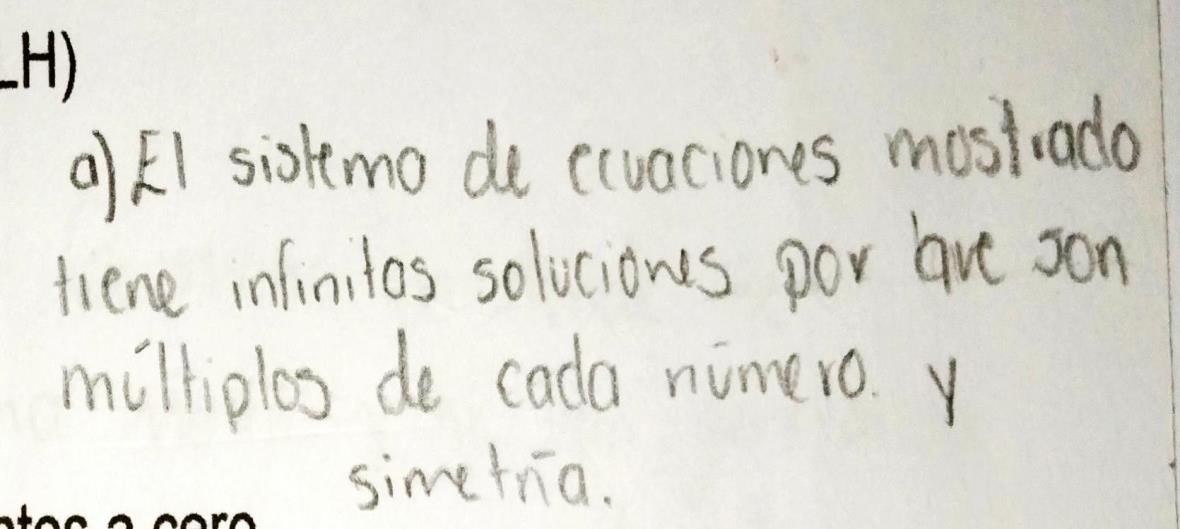 LH)
a) El sistema de ecuaciones mostrado
tiene infinitas soluciones por que son
múltiplos de cada número. y
simetría.
ntos a cero